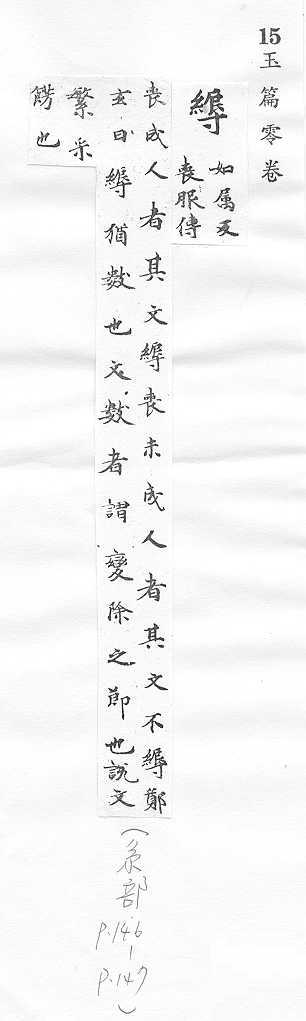 15 玉篇零卷
縟
如属反
喪服傳
喪成人者其文縟喪未成人者其文不縟鄭
玄曰縟猶數也文數者謂變除之節也說文
繁采
餝也
(糸部
p.146
-
p.147)